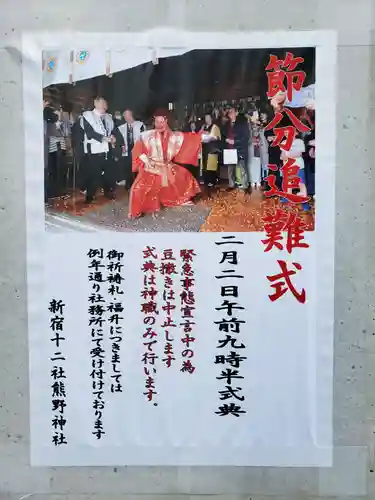 節分追難式
二月二日午前九時半式典
緊急事態宣言中の為
豆撒きは中止します
式典は神職のみで行います。
御祈祷札・福升につきましては
例年通り社務所にて受け付けております
新宿十二社熊野神社